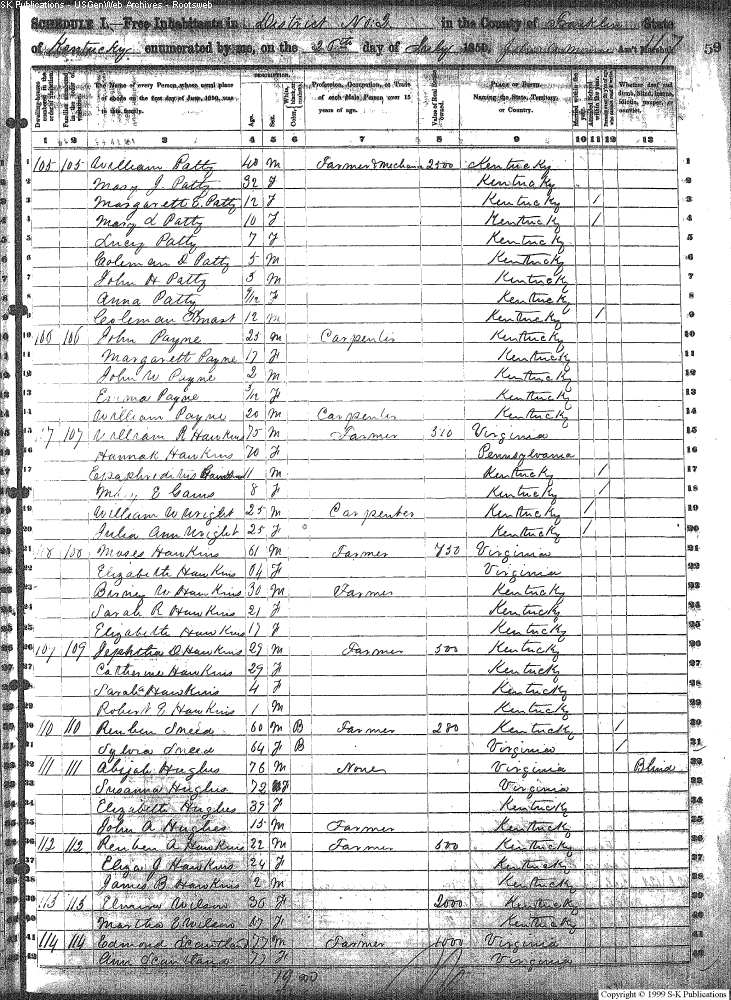 SK Publications - USGenWeb Archives - Rootsweb
SCHEDULE I.—Free Inhabitants in District No. 2 in the County of Franklin State
of Kentucky enumerated by me, on the 26th day of July 1850. Ass't Marshal. 117 59
DESCRIPTION.
Dwelling-houses numbered in the order of visitation. Families numbered in the order of visitation. The Name of every Person whose usual place of abode on the first day of June, 1850, was in this family. Age. Sex. White, black, or mulatto. Profession, Occupation, or Trade of each Male Person over 15 years of age. Value of Real Estate owned. PLACE OF BIRTH. Naming the State, Territory, or Country. Married within the year. Whether deaf and dumb, blind, insane, idiotic, pauper, or convict.
1 2 3 4 5 6 7 8 9 10 11 12 13
1 105 105 William Patty 40 M Farmer & Mechanic 2500 Kentucky 1
2 Mary J. Patty 32 F Kentucky 2
3 Margarett E. Patty 12 F Kentucky / 3
4 Mary L Patty 10 F Kentucky / 4
5 Lucy Patty 7 F Kentucky 5
6 Coleman D Patty 5 M Kentucky 6
7 John H Patty 3 M Kentucky 7
8 Anna Patty 9/12 F Kentucky 8
9 Coleman 12 M Kentucky / 9
10 106 106 John Payne 25 M Carpenter Kentucky 10
11 Margarett Payne 17 F Kentucky 11
12 John W Payne 2 M Kentucky 12
13 Emma Payne 3/12 F Kentucky 13
14 William Payne 20 M Carpenter Kentucky 14
15 107 107 William R Hawkins 75 M Farmer 510 Virginia 15
16 Hannah Hawkins 70 F Pennsylvania 16
17 Hawkins 11 M Kentucky / 17
18 Mary E Gains 8 F Kentucky / 18
19 William W Wright 25 M Carpenter Kentucky / 19
20 Julia Ann Wright 25 F Kentucky / 20
21 108 108 Moses Hawkins 61 M Farmer 750 Virginia 21
22 Elizabeth Hawkins 64 F Virginia 22
23 W Hawkins 30 M Farmer Kentucky 23
24 Sarah R Hawkins 21 F Kentucky 24
25 Elizabeth Hawkins 17 F Kentucky 25
26 109 109 Jephtha D Hawkins 29 M Farmer 500 Kentucky 26
27 Catherine Hawkins 29 F Kentucky 27
28 Sarah Hawkins 4 F Kentucky 28
29 Robert E Hawkins 1 M Kentucky 29
30 110 110 Reuben Sneed 60 M B Farmer 280 Kentucky / 30
31 Sylvia Sneed 64 F B Virginia / 31
32 111 111 Abijah Hughes 76 M None Virginia Blind 32
33 Susanna Hughes 72 F Virginia 33
34 Elizabeth Hughes 39 F Kentucky 34
35 John A Hughes 15 M Farmer Kentucky 35
36 112 112 Reuben A Hawkins 22 M Farmer 500 Kentucky 36
37 Eliza J Hawkins 24 F Kentucky 37
38 James B Hawkins 2 M Kentucky 38
39 113 113 Wilson 36 F 2000 Kentucky 39
40 Martha E Wilson 17 F Kentucky 40
41 114 114 Edmond Scantland 77 M Farmer 1000 Virginia 41
42 Ann Scantland 77 F Virginia 42
Copyright © 1999 S-K Publications